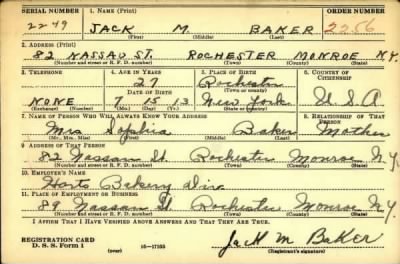 SERIAL NUMBER 1. NAME (Print) ORDER NUMBER
2249 JACK M. BAKER 2256
(First) (Middle) (Last)
2. ADDRESS (Print)
82 NASSAU ST. ROCHESTER MONROE N.Y.
(Number and street or R. F. D. number) (Town) (County) (State)
3. TELEPHONE 4. AGE IN YEARS 5. PLACE OF BIRTH 6. COUNTRY OF CITIZENSHIP
27 Rochester
DATE OF BIRTH (Town or county)
NONE 7 15 13 New York U.S.A
(Exchange) (Number) (Mo.) (Day) (Yr.) (State or country)
7. NAME OF PERSON WHO WILL ALWAYS KNOW YOUR ADDRESS 8. RELATIONSHIP OF THAT PERSON
Mrs Sophia Baker Mother
(Mr., Mrs., Miss) (First) (Middle) (Last)
9. ADDRESS OF THAT PERSON
82 Nassau St. Rochester Monroe N.Y.
(Number and street or R. F. D. number) (Town) (County) (State)
10. EMPLOYER'S NAME
Harts Bakery Divn
11. PLACE OF EMPLOYMENT OR BUSINESS
89 Nassau St Rochester Monroe N.Y.
(Number and street or R. F. D. number) (Town) (County) (State)
I AFFIRM THAT I HAVE VERIFIED ABOVE ANSWERS AND THAT THEY ARE TRUE.
REGISTRATION CARD
D. S. S. Form 1 (over) 16—17105 Jack M Baker
(Registrant's signature)